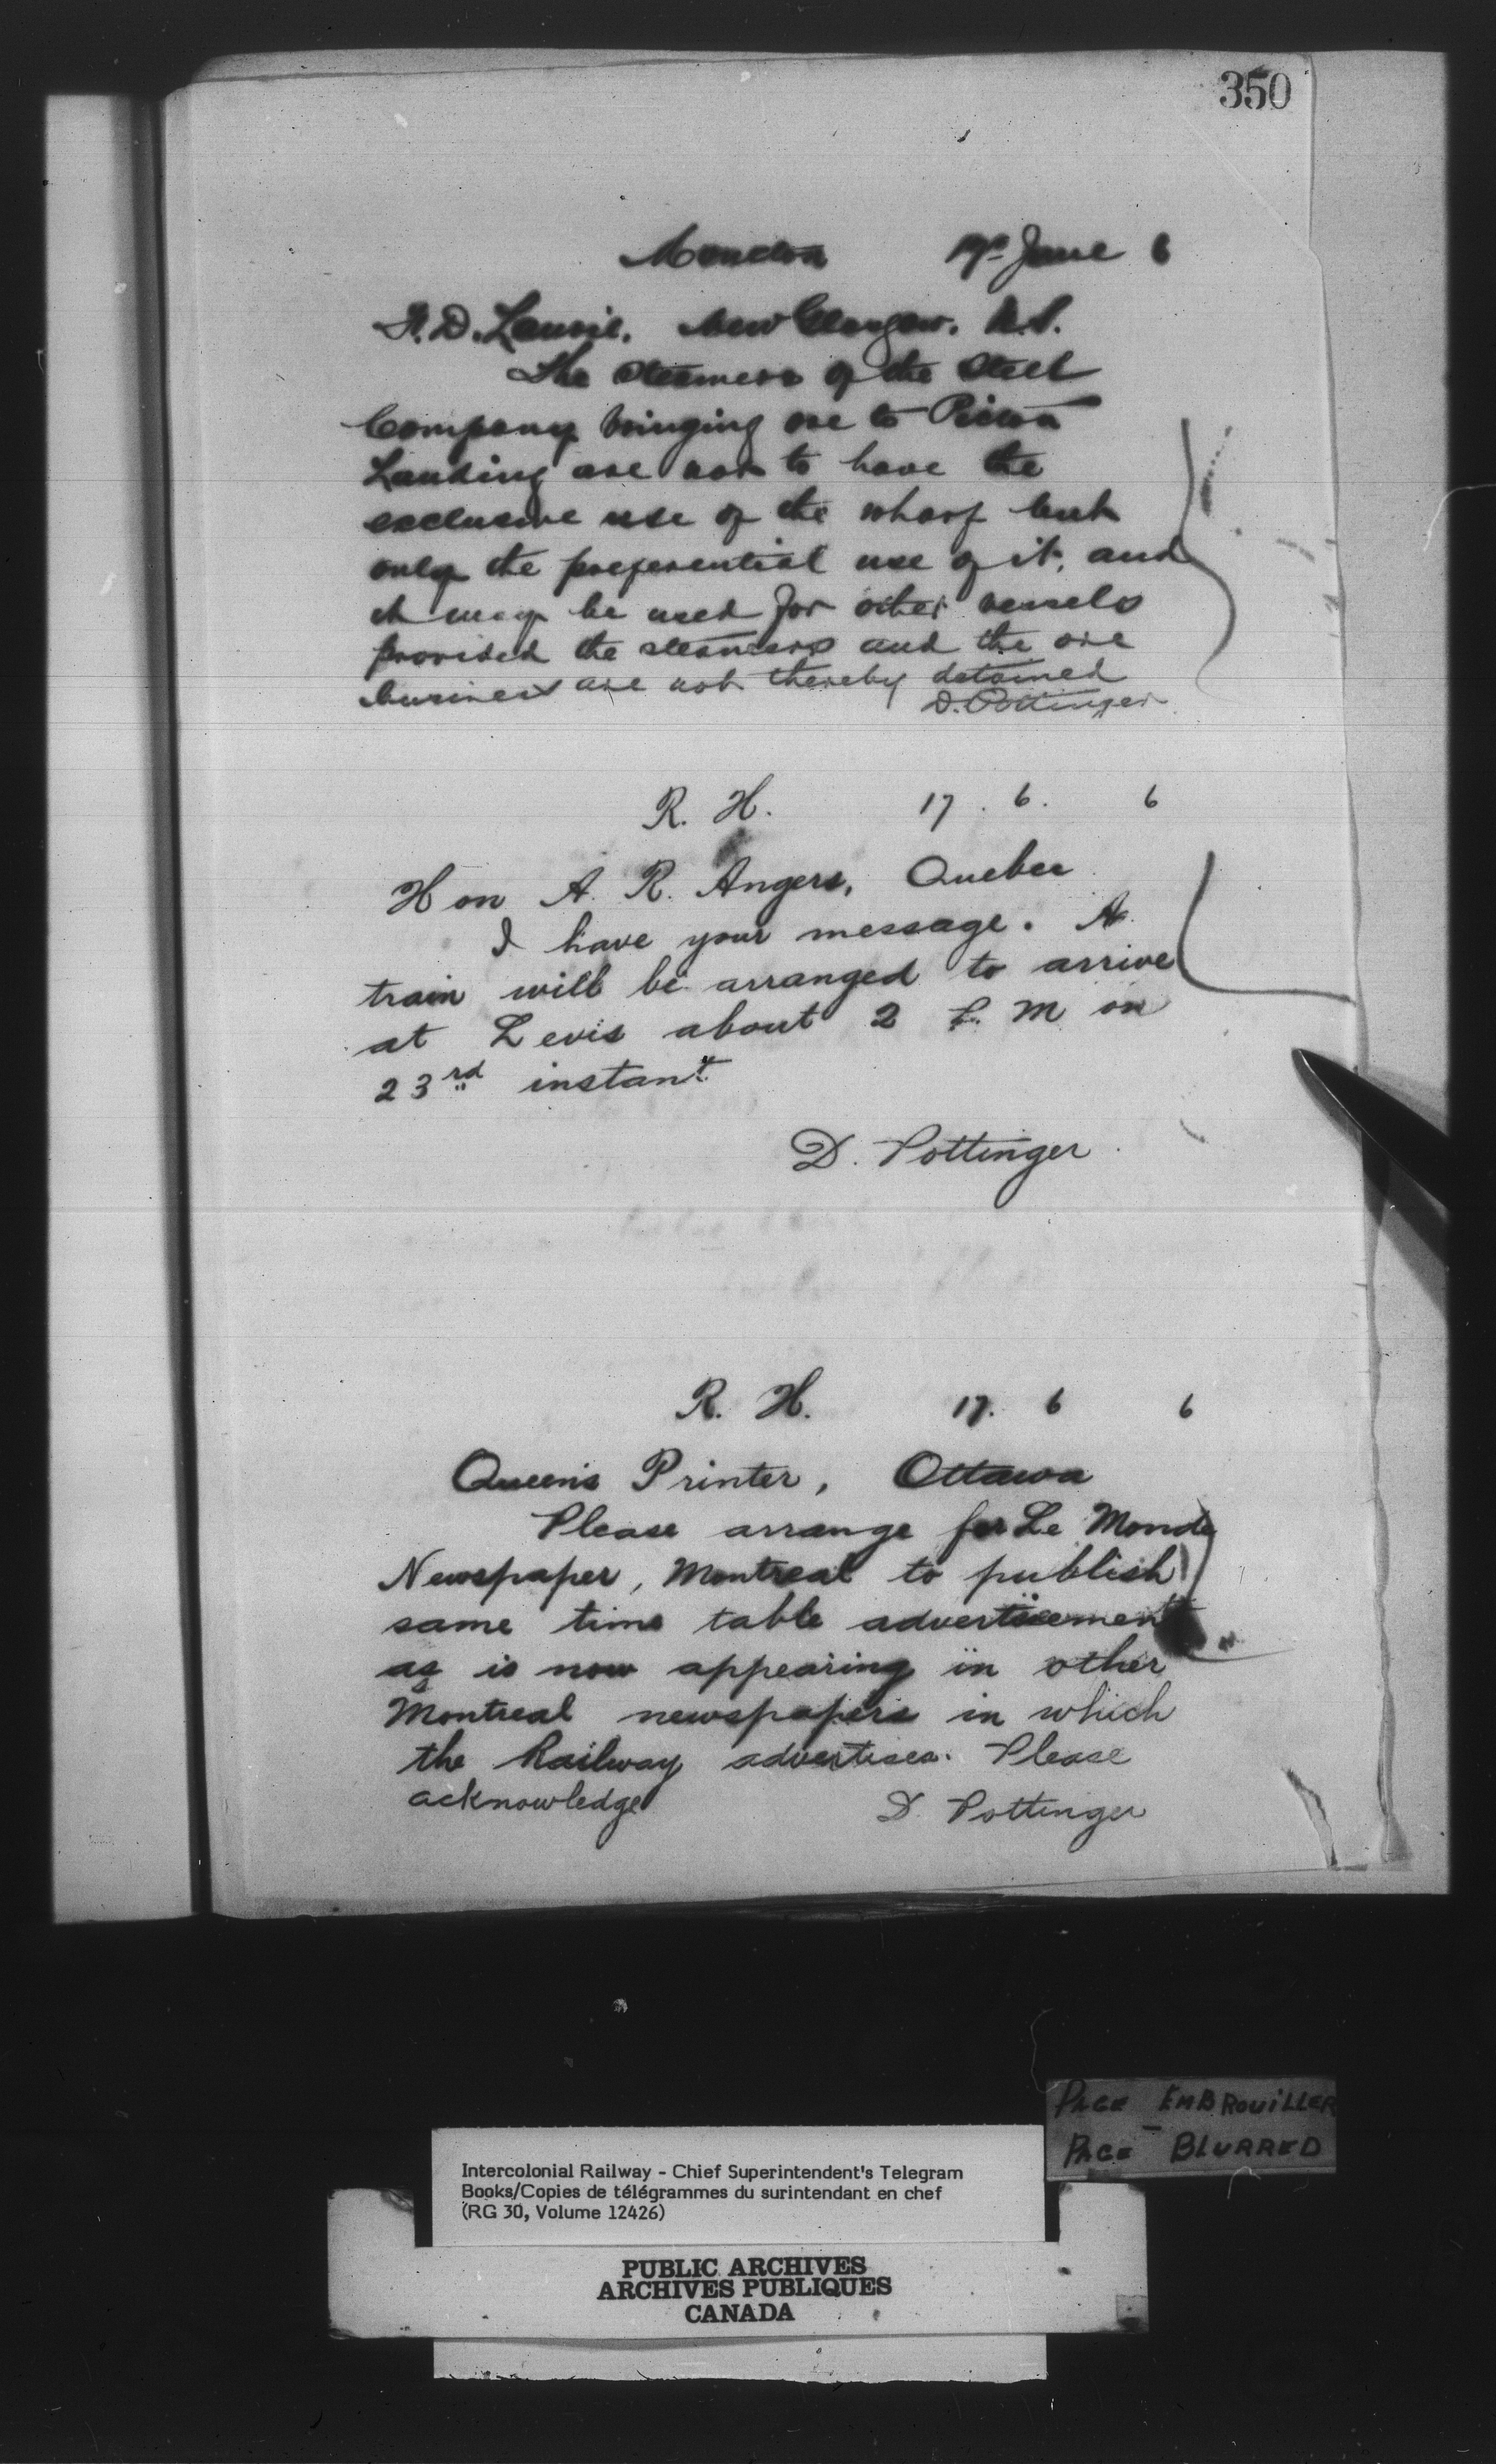 350
Moncton 17th June 6
D. Laurie, New Glasgow. N.S.
The steamers of the Steel
Company bringing ore to Pictou
Landing are not to have the
exclusive use of the wharf but
only the preferential use of it, and
it may be used for other vessels
provided the steamers and the ore
business are not thereby detained
D. Pottinger
R. H. 17. 6. 6
Hon A. R. Angers, Quebec
I have your message. A
train will be arranged to arrive
at Levis about 2 P. M on
23rd instant
D. Pottinger
R. H. 17. 6 6
Queen's Printer, Ottawa
Please arrange for Le Monde
Newspaper, Montreal to publish
same time table advertisement
as is now appearing in other
Montreal newspapers in which
the Railway advertises. Please
acknowledge D. Pottinger
PAGE EMBROUILLER
PAGE BLURRED
Intercolonial Railway - Chief Superintendent's Telegram
Books/Copies de télégrammes du surintendant en chef
(RG 30, Volume 12426)
PUBLIC ARCHIVES
ARCHIVES PUBLIQUES
CANADA